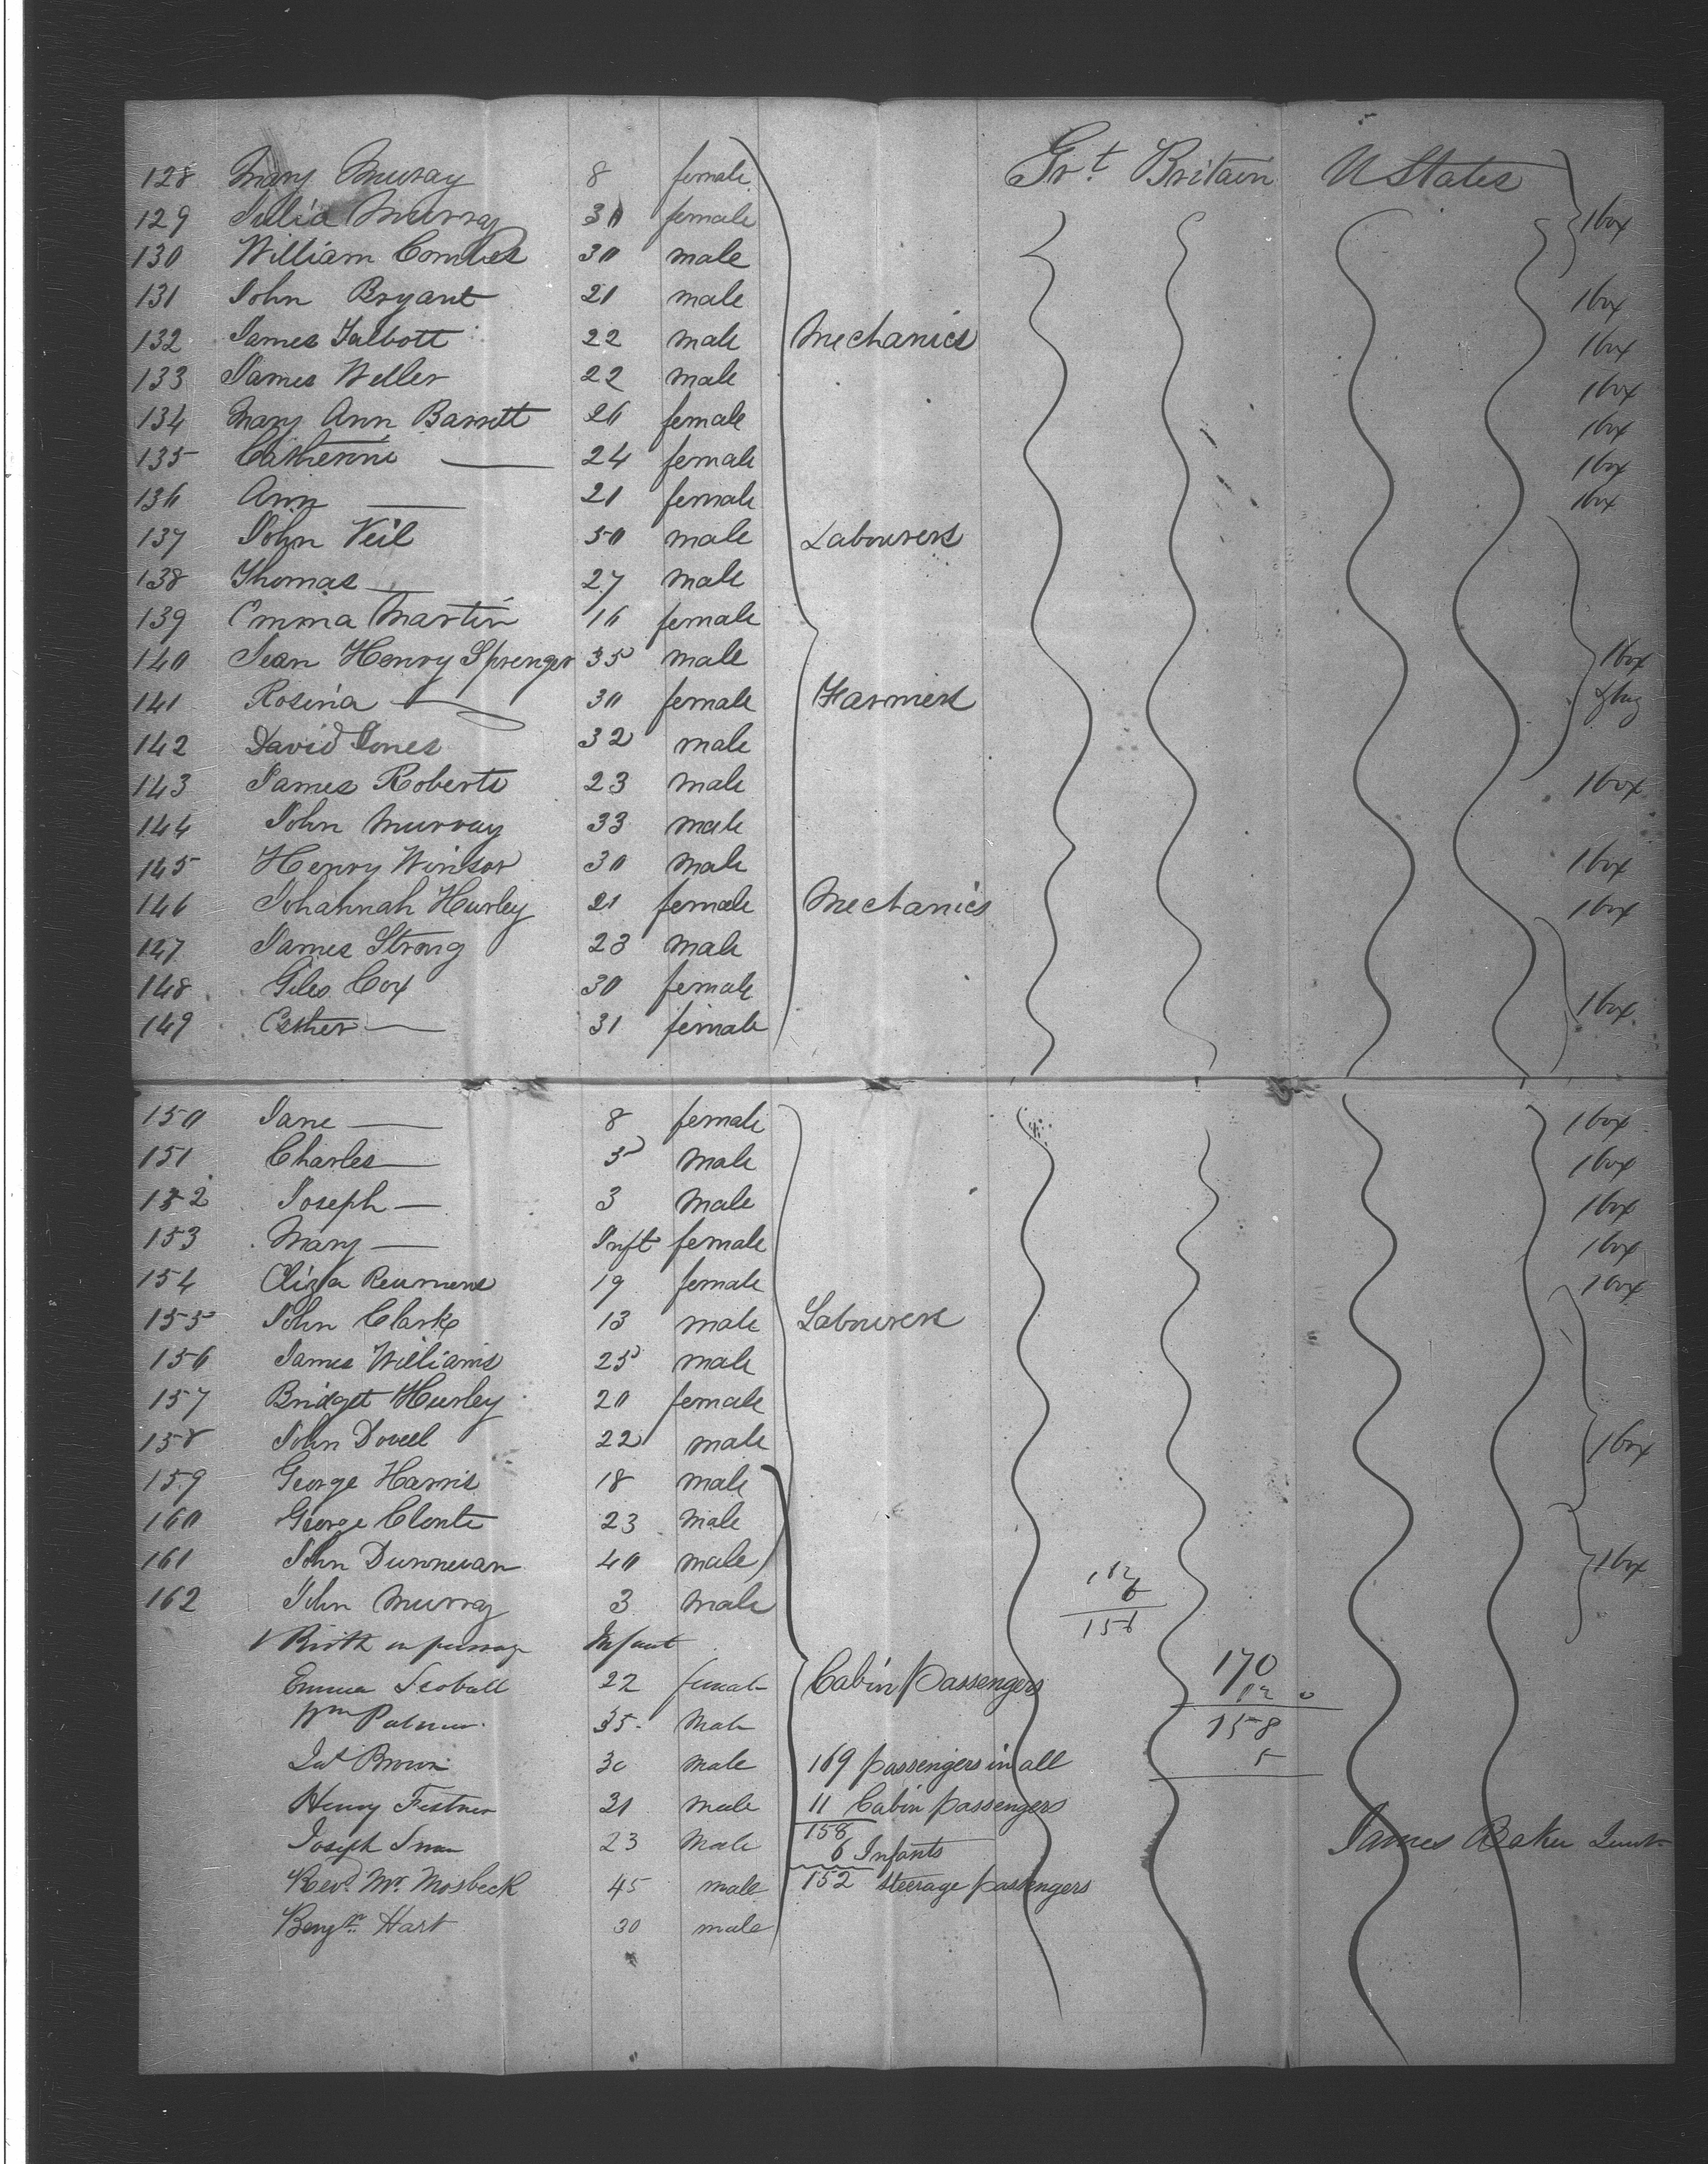 128 Mary Muray 8 female Grt Britain U States
129 Julia Murray 30 female 1 box
130 William Combes 30 male
131 John Bryant 21 male 1 box
132 James Talbott 22 male Mechanics 1 box
133 James Weller 22 male 1 box
134 Mary Ann Barrett 26 female 1 box
135 Catherine — 24 female 1 box
136 Ann — 21 female 1 box
137 John Veil 50 male Labourers
138 Thomas — 27 male
139 Emma Martin 16 female
140 Jean Henry Sprenger 35 male 1 box
141 Rosina — 30 female Farmers & bag
142 David Jones 32 male
143 James Roberts 23 male 1 box
144 John Murray 33 male
145 Henry Winsor 30 male 1 box
146 Johannah Hurley 21 female Mechanics 1 box
147 James Strong 23 male
148 Giles Cox 30 female
149 Esther — 31 female 1 box
150 Jane — 8 female 1 box
151 Charles — 5 male 1 box
152 Joseph — 3 male 1 box
153 Mary — Inft female 1 box
154 Eliza 19 female 1 box
155 John Clarke 13 male Labourers
156 James Williams 25 male
157 Bridget Hurley 20 female
158 John Dovell 22 male 1 box
159 George Harris 18 male
160 George Clente 23 male
161 John Dunnevan 40 male 1 box
162 John Murray 3 male 156
1 Birth on passage Infant
Emma Scobell 22 female Cabin passengers 170
Wm Palmer 35 Male 158
Brown 30 male 169 passengers in all 5
Henry 31 male 11 Cabin passengers
158
Joseph 23 Male 6 Infants James Baker
Revd. Mr. Mosbeck 45 male 152 steerage passengers
Benjn. Hart 30 male